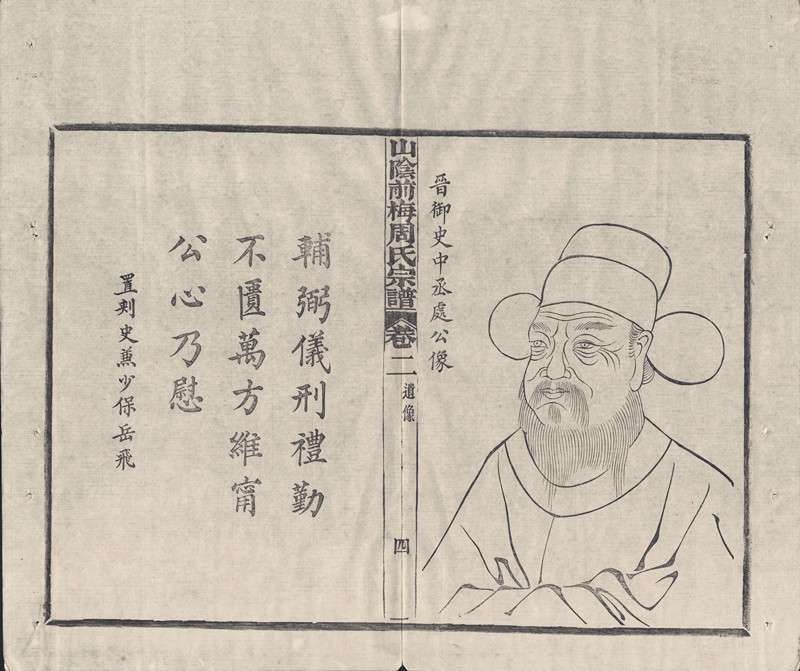 晉御史中丞處公像
山陰前梅周氏宗譜
卷二
遺像
四
輔弼儀刑禮勤
不匱萬方維甯
公心乃慰
置刺史兼少保岳飛